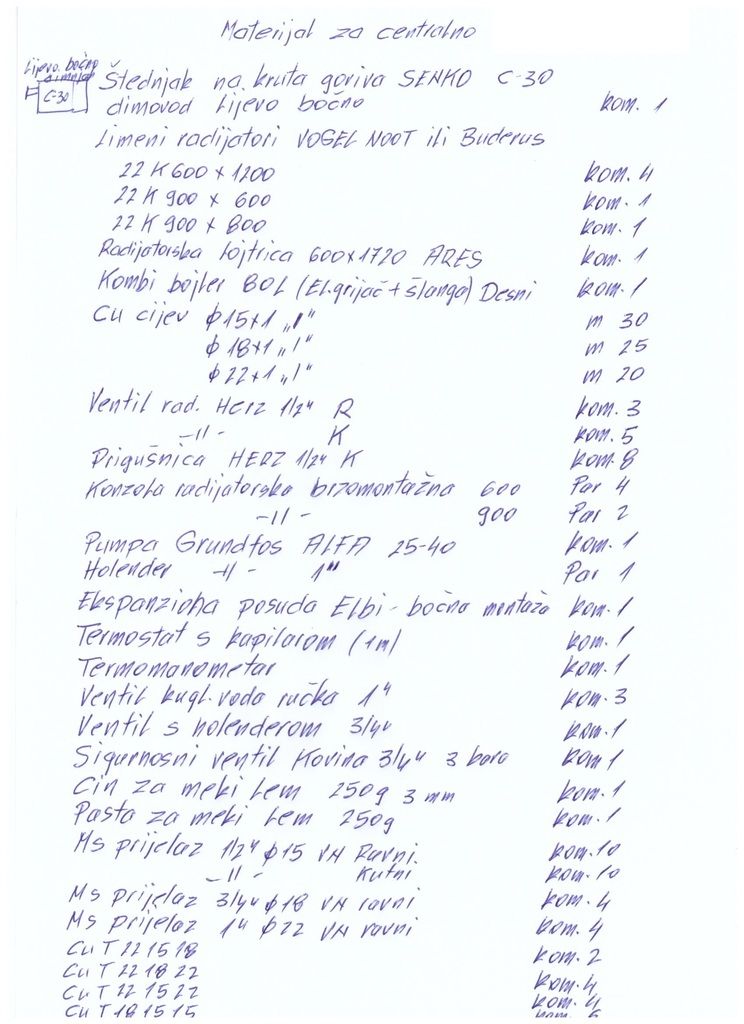 Materijal za centralno
Lijevo bočno
dimnjak
C-30
Štednjak na kruta goriva SENKO C-30
dimovod Lijevo bočno kom. 1
Limeni radijatori VOGEL NOOT ili Buderus
22 K 600 x 1200 kom. 4
22 K 900 x 600 kom. 1
22 K 900 x 800 kom. 1
Radijatorska Lojtrica 600x1720 ARES kom. 1
Kombi bojler 80L (El.grijač + šlanga) Desni kom. 1
Cu cijev ϕ 15x1 „1" m 30
ϕ 18x1 „1" m 25
ϕ 22x1 „1" m 20
Ventil rad. Herz 1/2" R kom. 3
-11- K kom. 5
Prigušnica HERZ 1/2" K kom. 8
Konzola radijatorska brzomontažna 600 Par 4
-11- 900 Par 2
Pumpa Grundfos ALFA 25-40 kom. 1
Holender -11- 1" Par 1
Ekspanziona posuda Elbi - bočna montaža kom. 1
Termostat s kapilarom (1m) kom. 1
Termomanometar kom. 1
Ventil kugl. voda ručka 1" kom. 3
Ventil s holenderom 3/4" kom. 1
Sigurnosni ventil Kovina 3/4" 3 bara kom 1
Cin za meki Lem 250g 3 mm kom. 1
Pasta za meki Lem 250g kom. 1
Ms prijelaz 1/2" ϕ15 VN Ravni kom. 10
-11- Kutni kom. 10
Ms prijelaz 3/4" ϕ18 VN ravni kom. 4
Ms prijelaz 1" ϕ22 VN ravni kom. 4
Cu T 22 15 18 kom. 2
Cu T 22 18 22 kom. 4
Cu T 22 15 22 kom. 4
Cu T 18 15 15